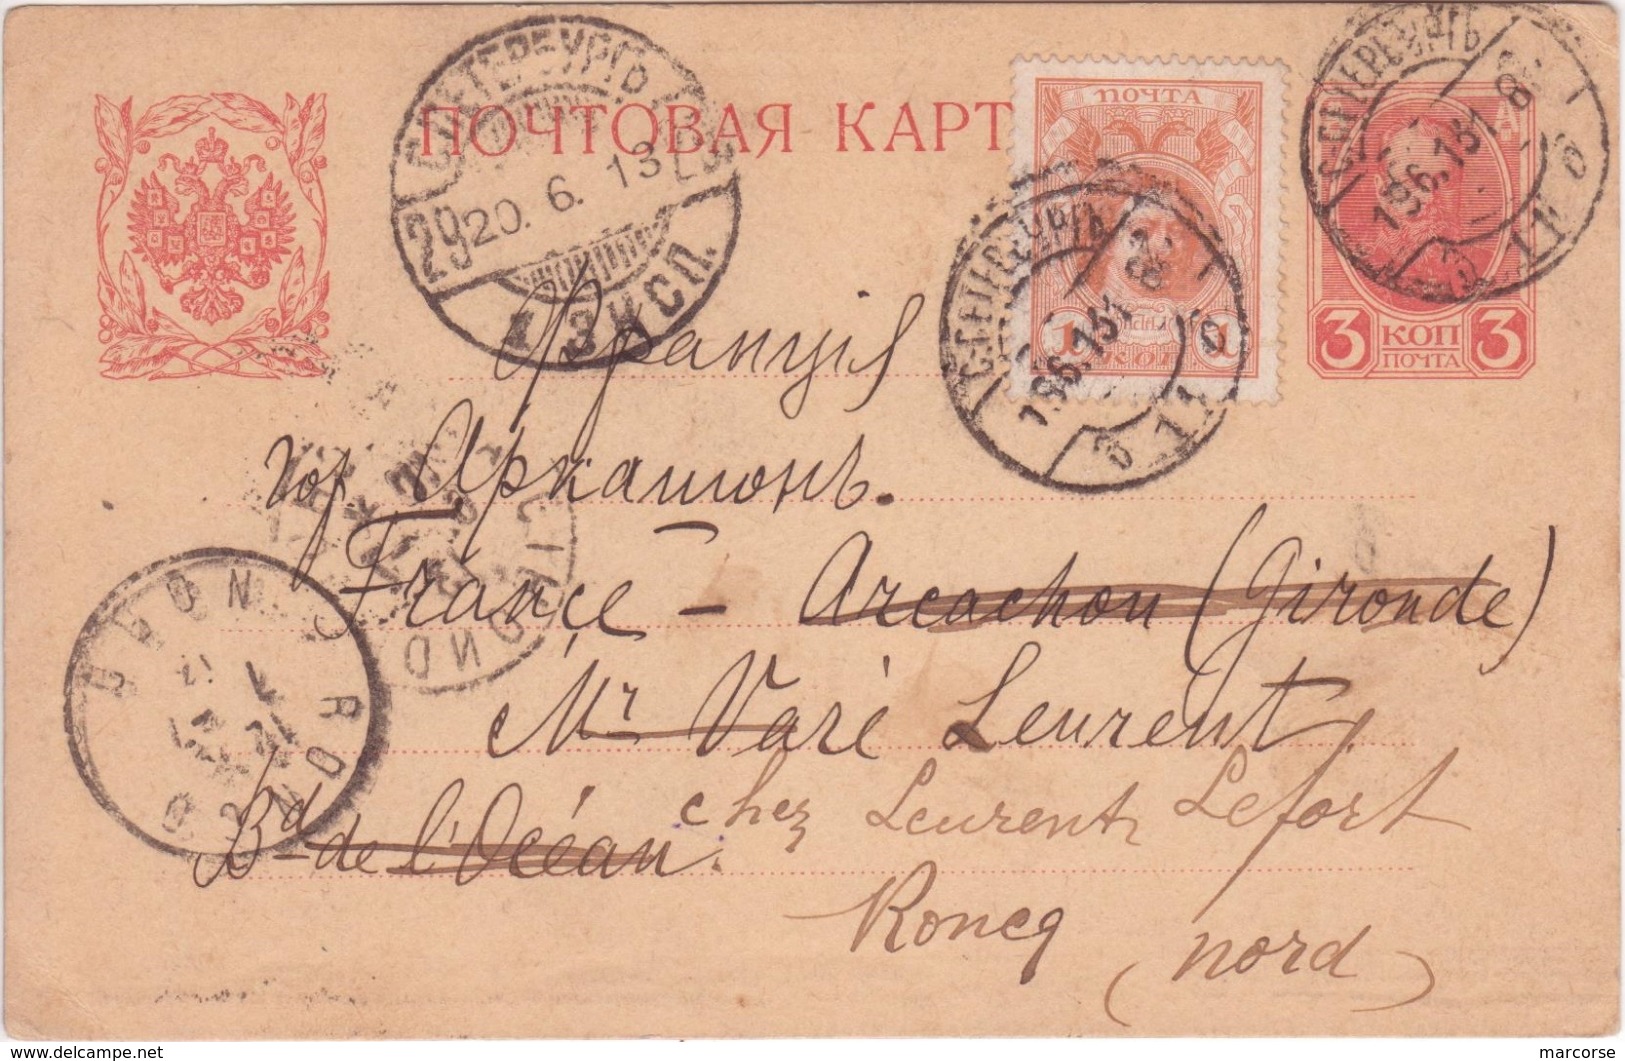 ПОЧТОВАЯ КАРТ
С.ПЕТЕРБУРГЪ
20. 6. 13
29
1 ЭКСП.
ПОЧТА
1 1
КОП
С.ПЕТЕРБУРГЪ
19.6.13
11
С.ПЕТЕРБУРГЪ
19.6.13
11
А
3 КОП 3
ПОЧТА
Франція
гор Аркашонъ.
France - Arcachon (Gironde)
Mr Varé Leurent
Bd de l'Océan.
chez Leurent Lefort
Roncq
(nord)
RONCQ
NORD
GIRONDE
delcampe.net
marcorse